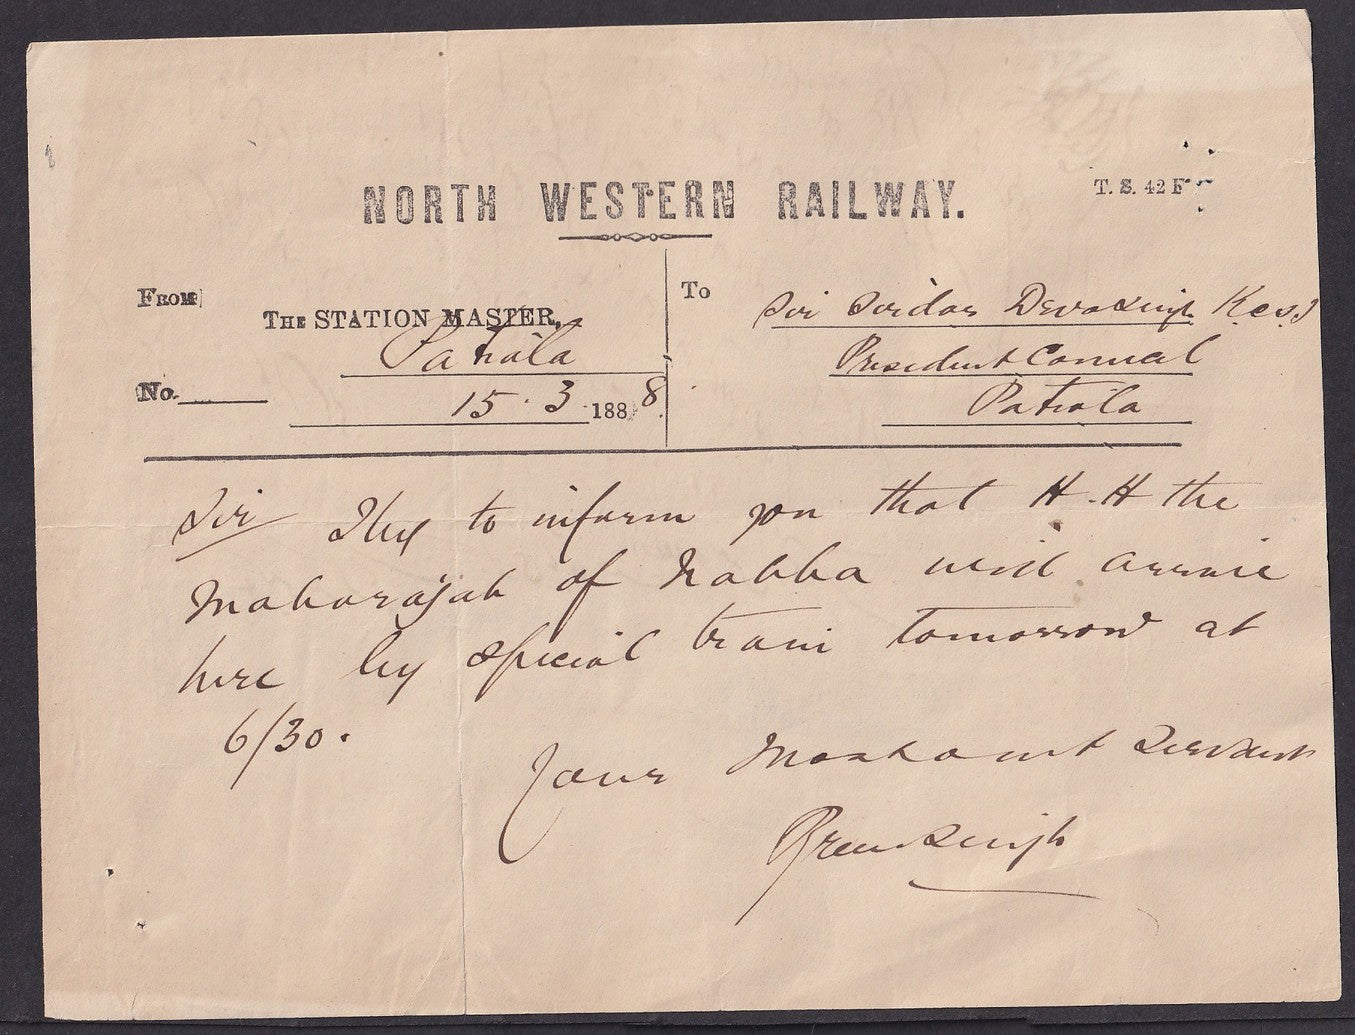 NORTH WESTERN RAILWAY.
T. S. 42 F
FROM
THE STATION MASTER,
Patiala
No.
15 . 3 . 1888.
To
Sir Sirdar Deva Singh K.C.S.I
President Council
Patiala
Sir I beg to inform you that H.H the
Maharajah of Nabha will arrive
here by special train tomorrow at
6/30.
Your Most obnt Servant
Prem Singh